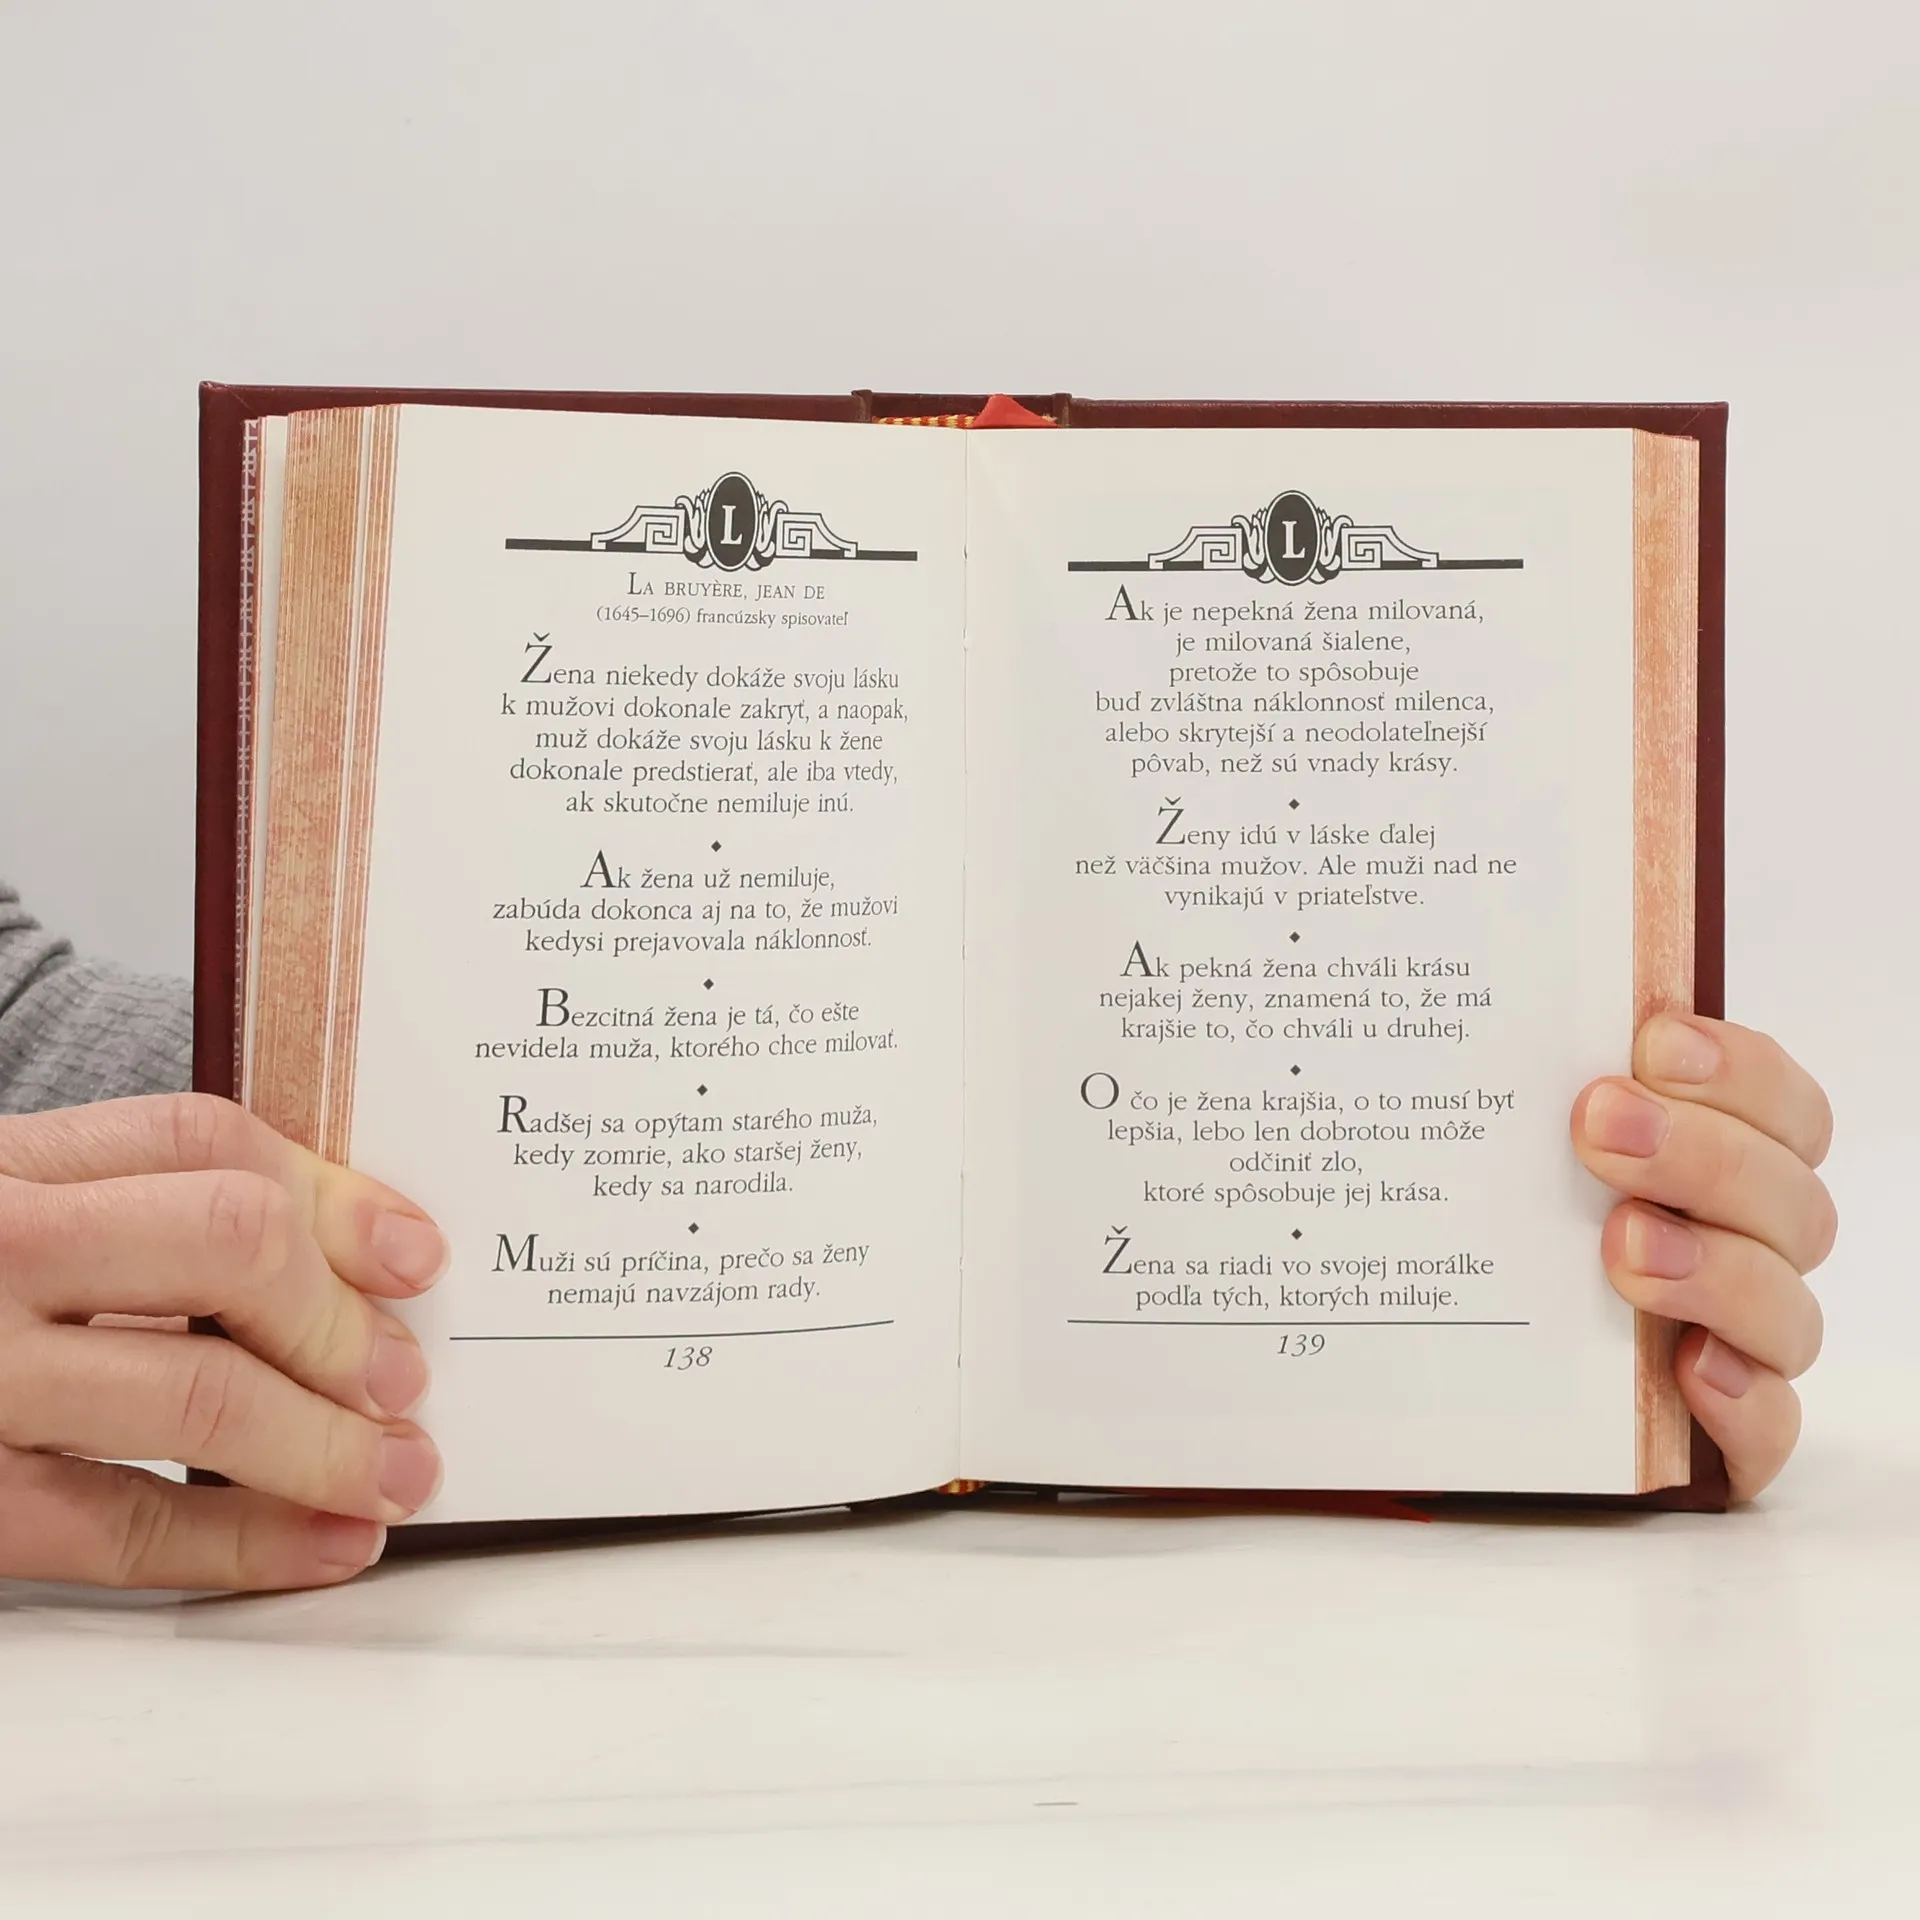 L
LA BRUYÈRE, JEAN DE
(1645–1696) francúzsky spisovateľ
Žena niekedy dokáže svoju lásku
k mužovi dokonale zakryť, a naopak,
muž dokáže svoju lásku k žene
dokonale predstierať, ale iba vtedy,
ak skutočne nemiluje inú.
Ak žena už nemiluje,
zabúda dokonca aj na to, že mužovi
kedysi prejavovala náklonnosť.
Bezcitná žena je tá, čo ešte
nevidela muža, ktorého chce milovať.
Radšej sa opýtam starého muža,
kedy zomrie, ako staršej ženy,
kedy sa narodila.
Muži sú príčina, prečo sa ženy
nemajú navzájom rady.
138
L
Ak je nepekná žena milovaná,
je milovaná šialene,
pretože to spôsobuje
buď zvláštna náklonnosť milenca,
alebo skrytejší a neodolateľnejší
pôvab, než sú vnady krásy.
Ženy idú v láske ďalej
než väčšina mužov. Ale muži nad ne
vynikajú v priateľstve.
Ak pekná žena chváli krásu
nejakej ženy, znamená to, že má
krajšie to, čo chváli u druhej.
O čo je žena krajšia, o to musí byť
lepšia, lebo len dobrotou môže
odčiniť zlo,
ktoré spôsobuje jej krása.
Žena sa riadi vo svojej morálke
podľa tých, ktorých miluje.
139